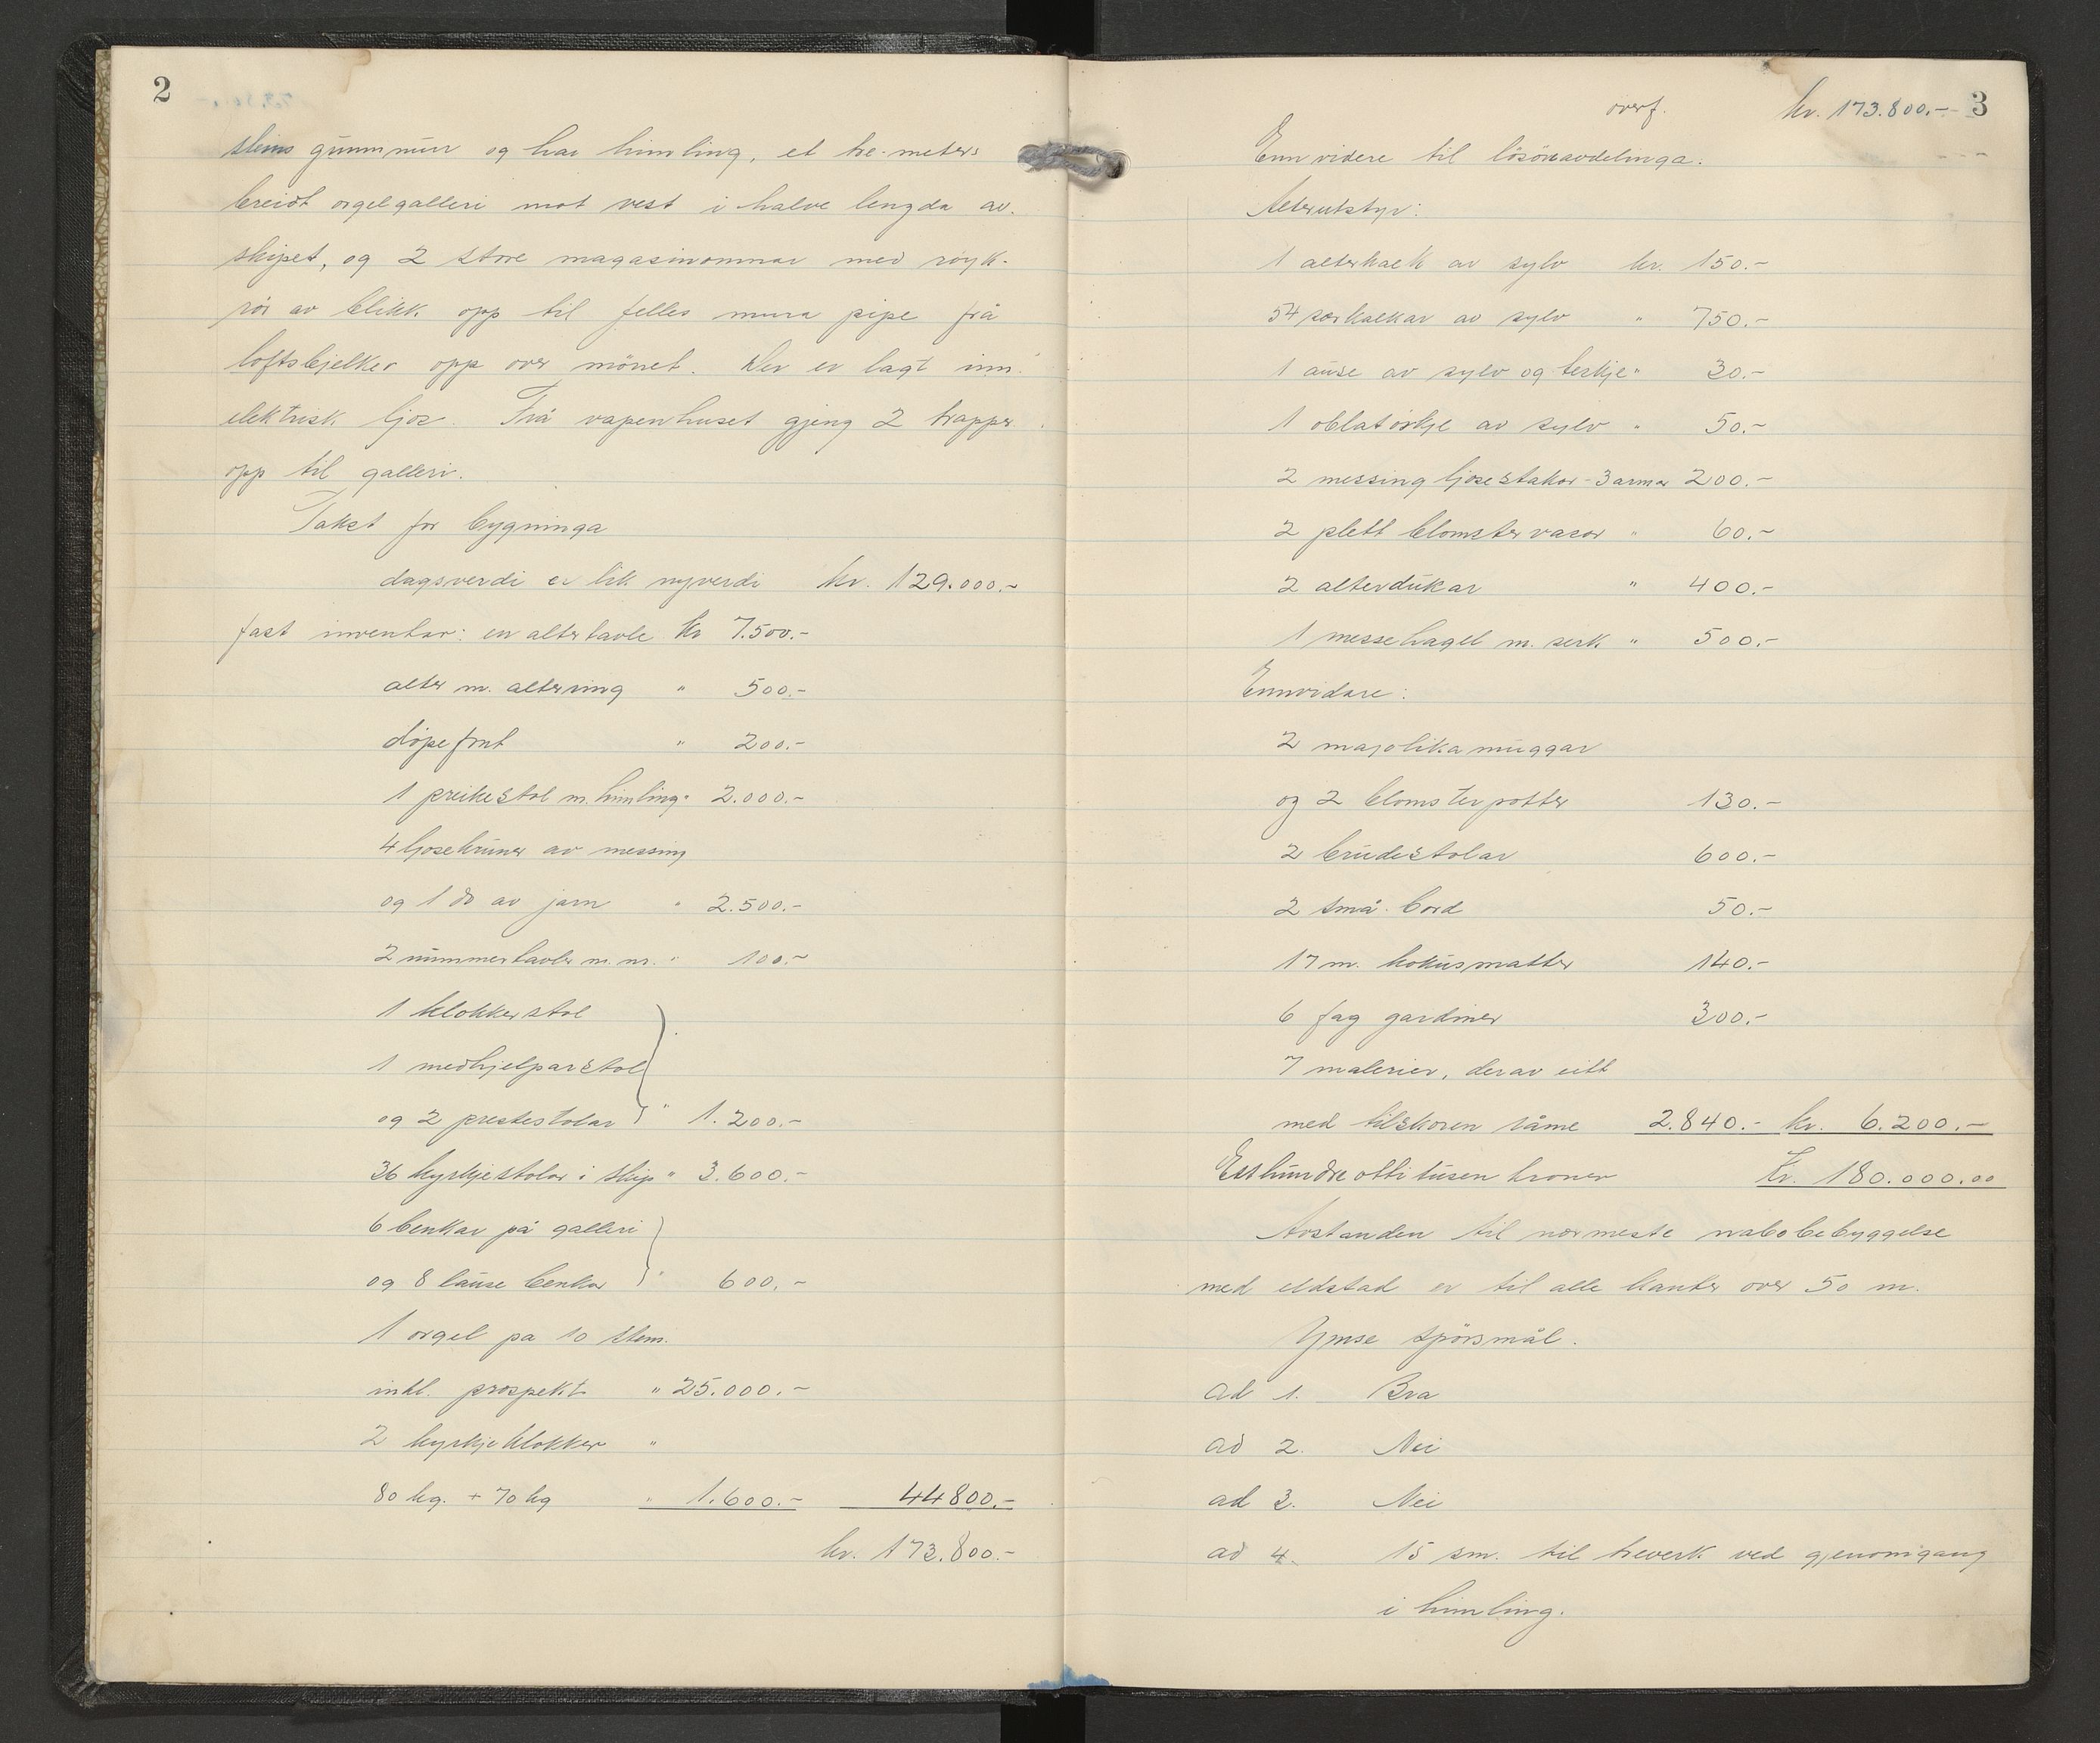 2
steins grunnmur og har himling, et tre-meters
breidt orgelgalleri mot vest i halve lengda av
skipet, og 2 store magasinomnar med røyk-
rör av blikk opp til felles mura pipe frå
loftsbjelker opp over mönet. Der er lagt inn
elektrisk ljos. Frå vapenhuset gjeng 2 trapper
opp til galleri.
Takst for bygninga
dagsverdi er lik nyverdi kr. 129.000.-
fast inventar: en altertavle kr 7.500.-
alter m. altering " 500.-
döpefont " 200.-
1 preikestol m. himling " 2.000.-
4 ljosekruner av messing
og 1 do av jarn " 2.500.-
2 nummertavler m. nr. " 100.-
1 klokkerstol
1 medhjelparstol
og 2 prestestolar " 1.200.-
36 kyrkjestolar i skip " 3.600.-
6 benkar på galleri
og 8 lause benkar " 600.-
1 orgel pa 10 stem.
inkl. prospekt " 25.000.-
2 kyrkjeklokker "
80 kg. + 70 kg " 1.600.- 44800.-
kr. 173.800.-
overf. kr. 173.800.- 3
Enn videre til lösöreavdelinga:
Alterutstyr:
1 alterkalk av sylv kr. 150.-
54 særkalkar av sylv " 750.-
1 ause av sylv og teskje " 30.-
1 oblatöskje av sylv " 50.-
2 messing ljosestakar - 3 armar 200.-
2 plett blomstervasor " 60.-
2 alterdukar " 400.-
1 messehagel m. serk " 500.-
Ennvidare:
2 majolika muggar
og 2 blomsterpotter 130.-
2 brudestolar 600.-
2 små bord 50.-
17 m. kokusmatter 140.-
6 fag gardiner 300.-
7 malerier, derav eitt
med tilskoren råme 2.840.- kr. 6.200.-
Eitthundreottitusen kroner Kr. 180.000.00
Avstanden til nærmeste nabobebyggelse
med eldstad er til alle kanter over 50 m.
Ymse spörsmål.
ad 1. Bra
ad 2. Nei
ad 3. Nei
ad 4. 15 sm. til treverk ved gjenomgang
i himling.